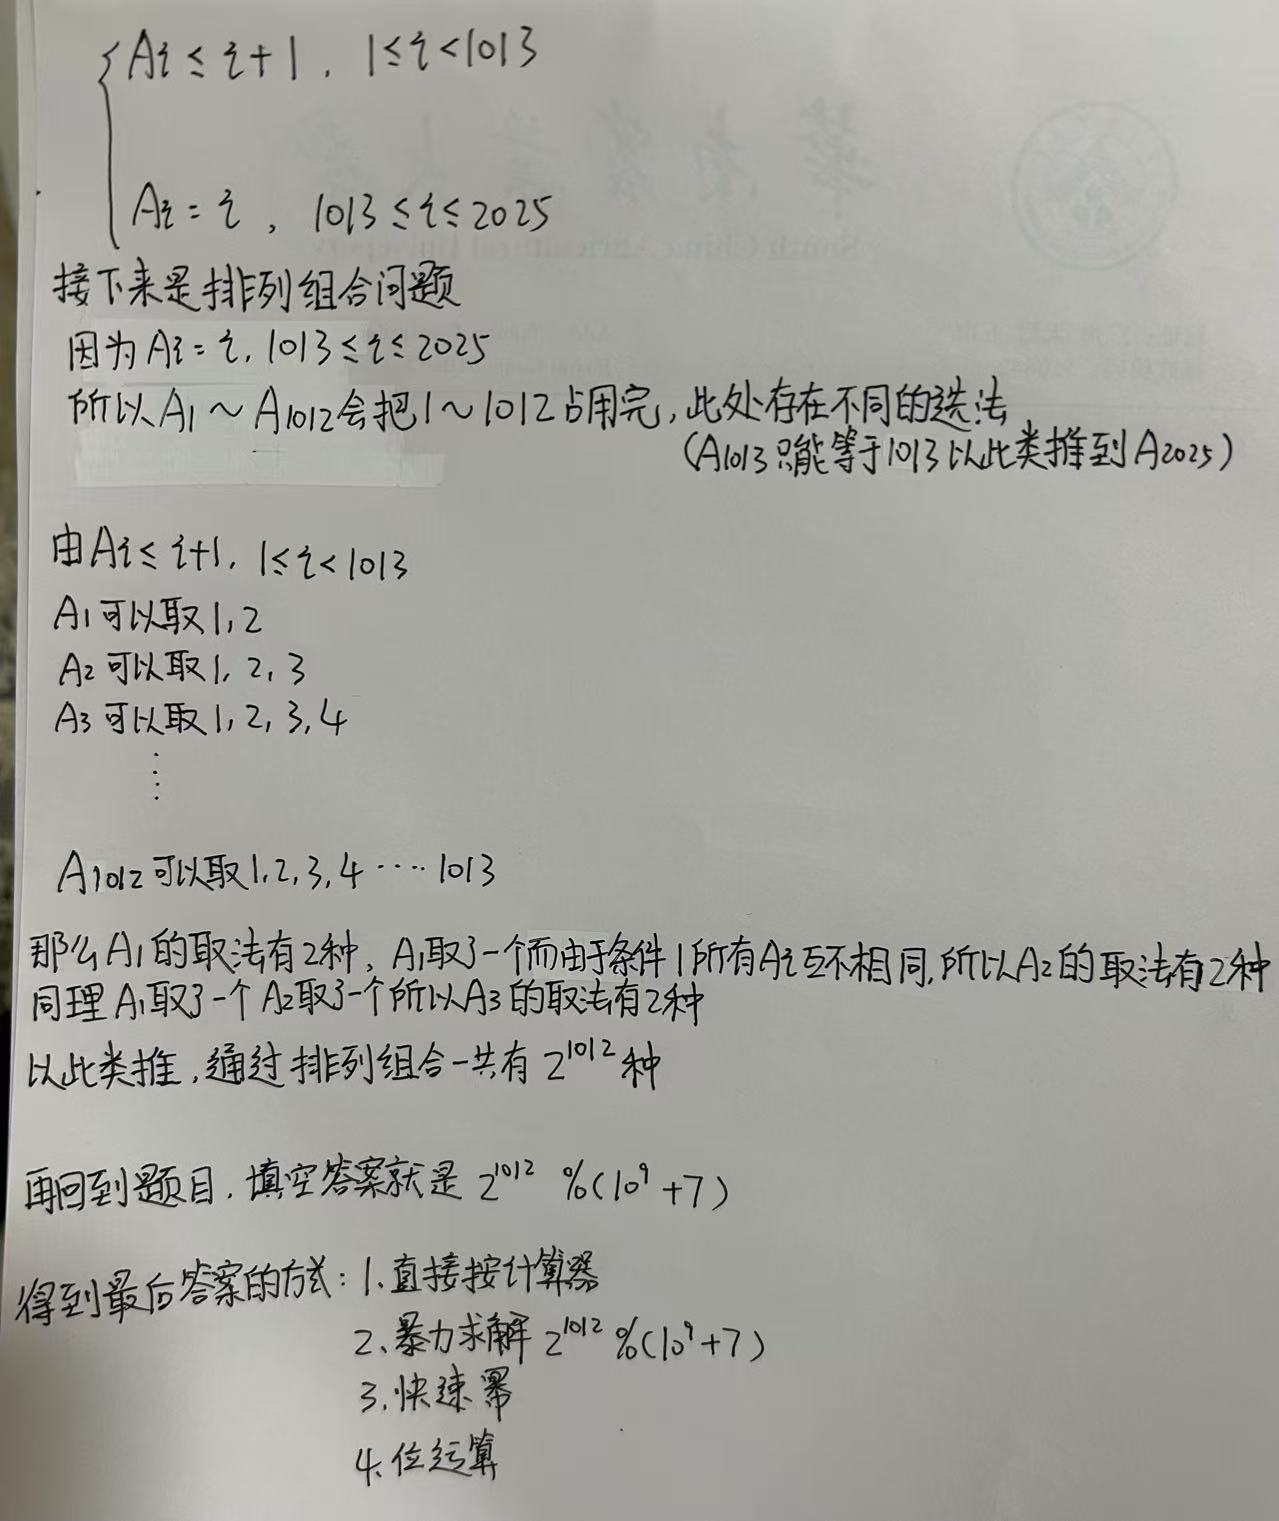 { Ai ≤ i+1, 1≤i<1013
Ai = i, 1013≤i≤2025
接下来是排列组合问题
因为Ai=i, 1013≤i≤2025
所以A1～A1012会把1～1012占用完,此处存在不同的选法
(A1013只能等于1013以此类推到A2025)
由Ai≤i+1, 1≤i<1013
A1可以取1,2
A2可以取1,2,3
A3可以取1,2,3,4
⋮
A1012可以取1,2,3,4····1013
那么A1的取法有2种,A1取了一个而由于条件1所有Ai互不相同,所以A2的取法有2种
同理A1取了一个A2取了一个所以A3的取法有2种
以此类推,通过排列组合一共有2^1012种
再回到题目,填空答案就是2^1012 %(10^9+7)
得到最后答案的方式:1.直接按计算器
2、暴力求解2^1012 %(10^9+7)
3.快速幂
4.位运算
South China Agricultural University